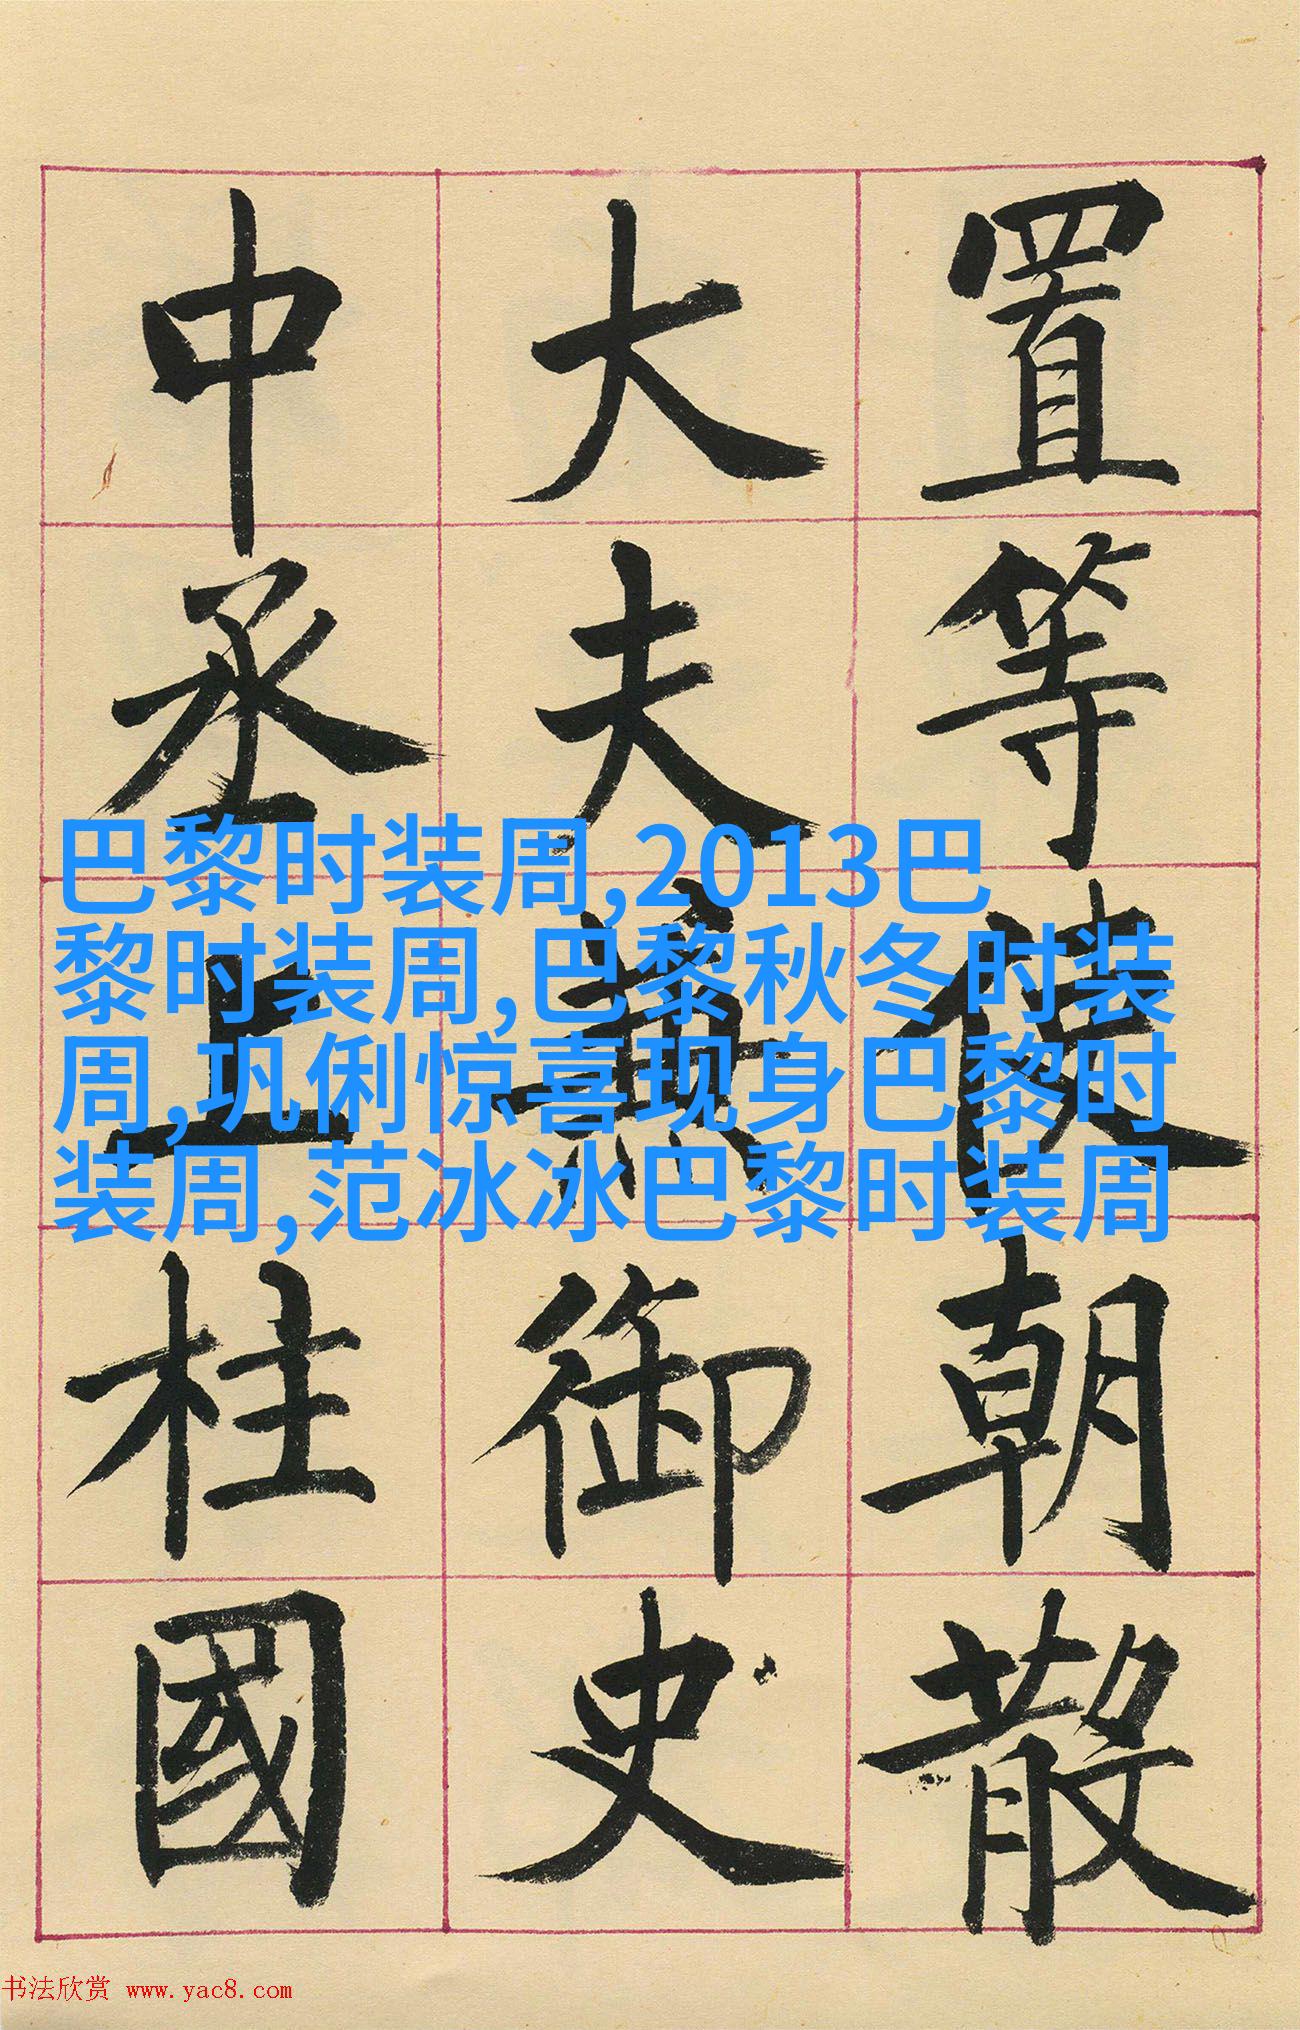 置等使朝散
大夫兼御史
中丞上柱國
巴黎时装周,2013巴
黎时装周,巴黎秋冬时装
周,巩俐惊喜现身巴黎时
装周,范冰冰巴黎时装周
书法欣赏 www.yac8.com